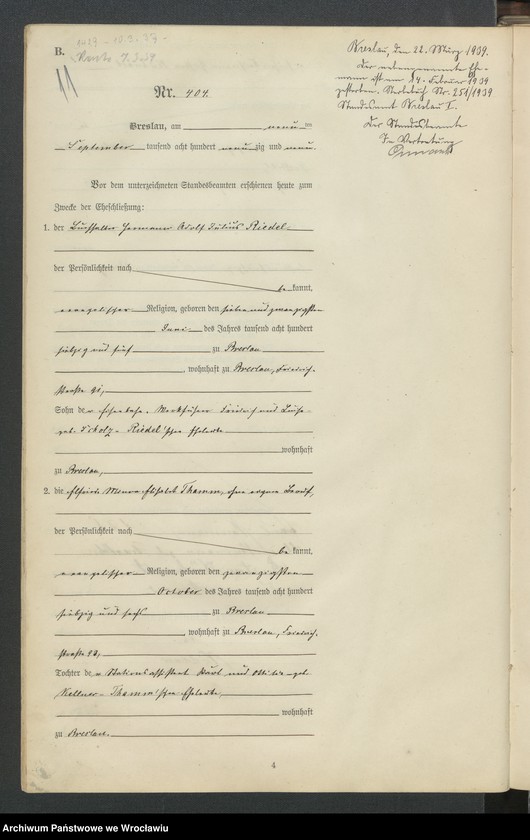 B.
Nr. 404.
Breslau, am neun ten
September tausend acht hundert neunzig und neun.
Vor dem unterzeichneten Standesbeamten erschienen heute zum
Zwecke der Eheschließung:
1. der Buchhalter Hermann Adolf Julius Riedel
der Persönlichkeit nach
be kannt,
evangelischer Religion, geboren den sieben und zwanzigsten
Juni des Jahres tausend acht hundert
siebzig und fünf zu Breslau
, wohnhaft zu Breslau, Friedrich-
straße
Sohn des Eisenbahn-Werkführer Friedrich und Luise
geb. Scholz-Riedel'schen Eheleute
wohnhaft
zu Breslau,
2. die Thamm, ohne Beruf,
der Persönlichkeit nach
be kannt,
evangelischer Religion, geboren den zwanzigsten
October des Jahres tausend acht hundert
siebzig und sechs zu Breslau
, wohnhaft zu Breslau, Friedrich-
straße
Tochter der Stationsassistent Karl und Ottilie geb.
Kellner-Thamm'schen Eheleute
wohnhaft
zu Breslau.
4
Breslau, den 22. März 1939.
Der nebengenannte Ehe-
mann ist am 14. Februar 1939
gestorben. Sterbebuch Nr. 251/1939
Standesamt Breslau I.
Der Standesbeamte
In Vertretung
Archiwum Państwowe we Wrocławiu